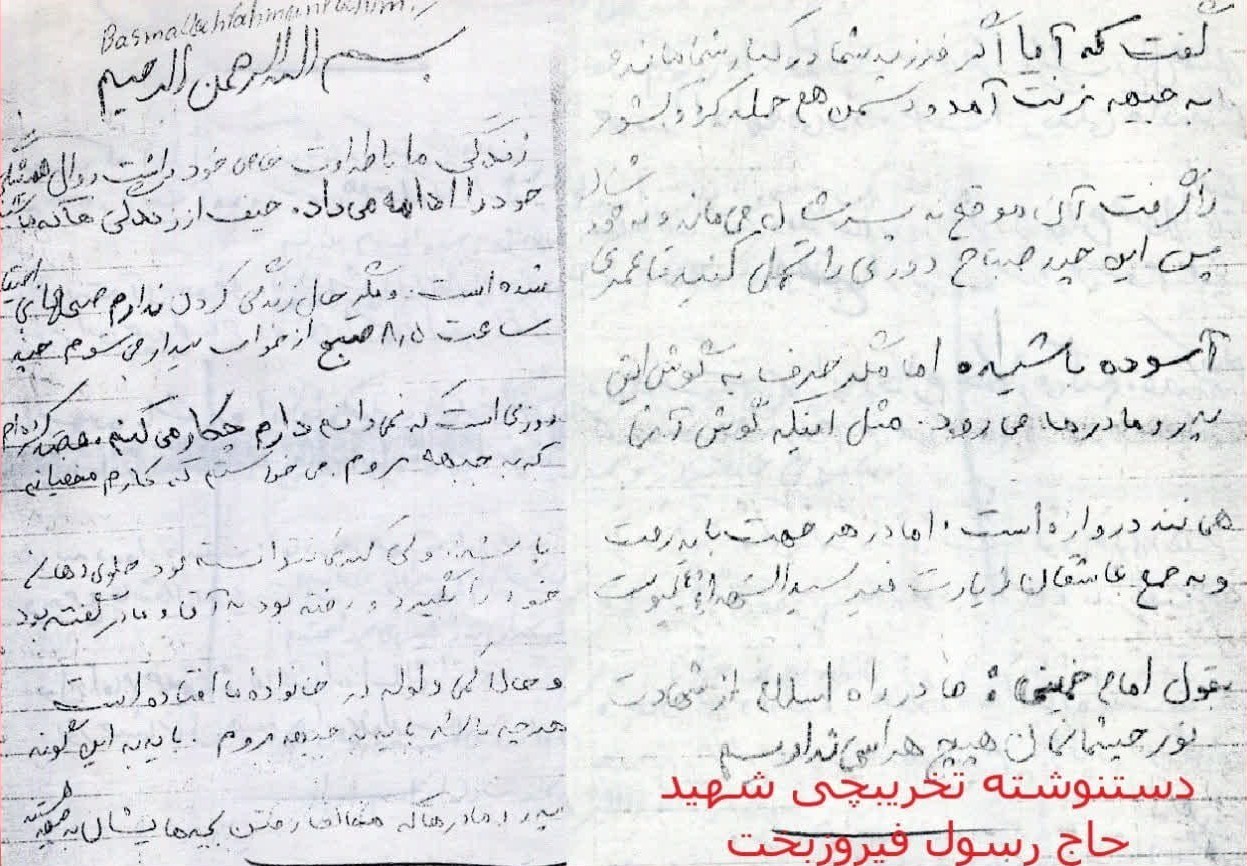 Basmallahrahmanrahim.
بسم الله الرحمن الرحیم
زندگی ما با طراوت خاص خود داشت روال همیشگی
خود را ادامه می‌داد. حیف از زندگی ها که
شده است. دیگر حال زندگی کردن ندارم صبحهای
ساعت ۸٫۵ صبح از خواب بیدار می‌شوم چند
روزی است که نمی دانم دارم چکار می کنم. قصد کرده‌ام
که به جبهه بروم. می خواستم که کارم مخفیانه
باشد. ولی نتوانسته بود جلوی دهان
خود را بگیرد و رفته بود به آقا و مادر گفته بود
و حالا کمی ولوله در خانواده ما افتاده است
هرچه باشد باید به جبهه بروم. باید به این گونه
پدر و مادرها که مخالف رفتن بچه‌هایشان به جبهه هستند
گفت که آیا اگر فرزند شما در کنار شما ماند و
به جبهه نرفت آمد و دشمن هم حمله کرد و کشور
را گرفت آن موقع نه پسرتان می ماند و نه خود
شما
پس این چند صباح دوری را تحمل کنید تا عمری
آسوده باشید. اما مگر حرف به گوش این
پدر و مادرها می رود. مثل اینکه گوش آنها
همانند دروازه است. اما در هر جهت باید رفت
و به جمع عاشقان زیارت قبر سیدالشهداء پیوست
بقول امام خمینی: ما در راه اسلام از شهادت
نور چشمانمان هیچ هراسی نداریم
دستنوشته تخریبچی شهید
حاج رسول فیروزبخت